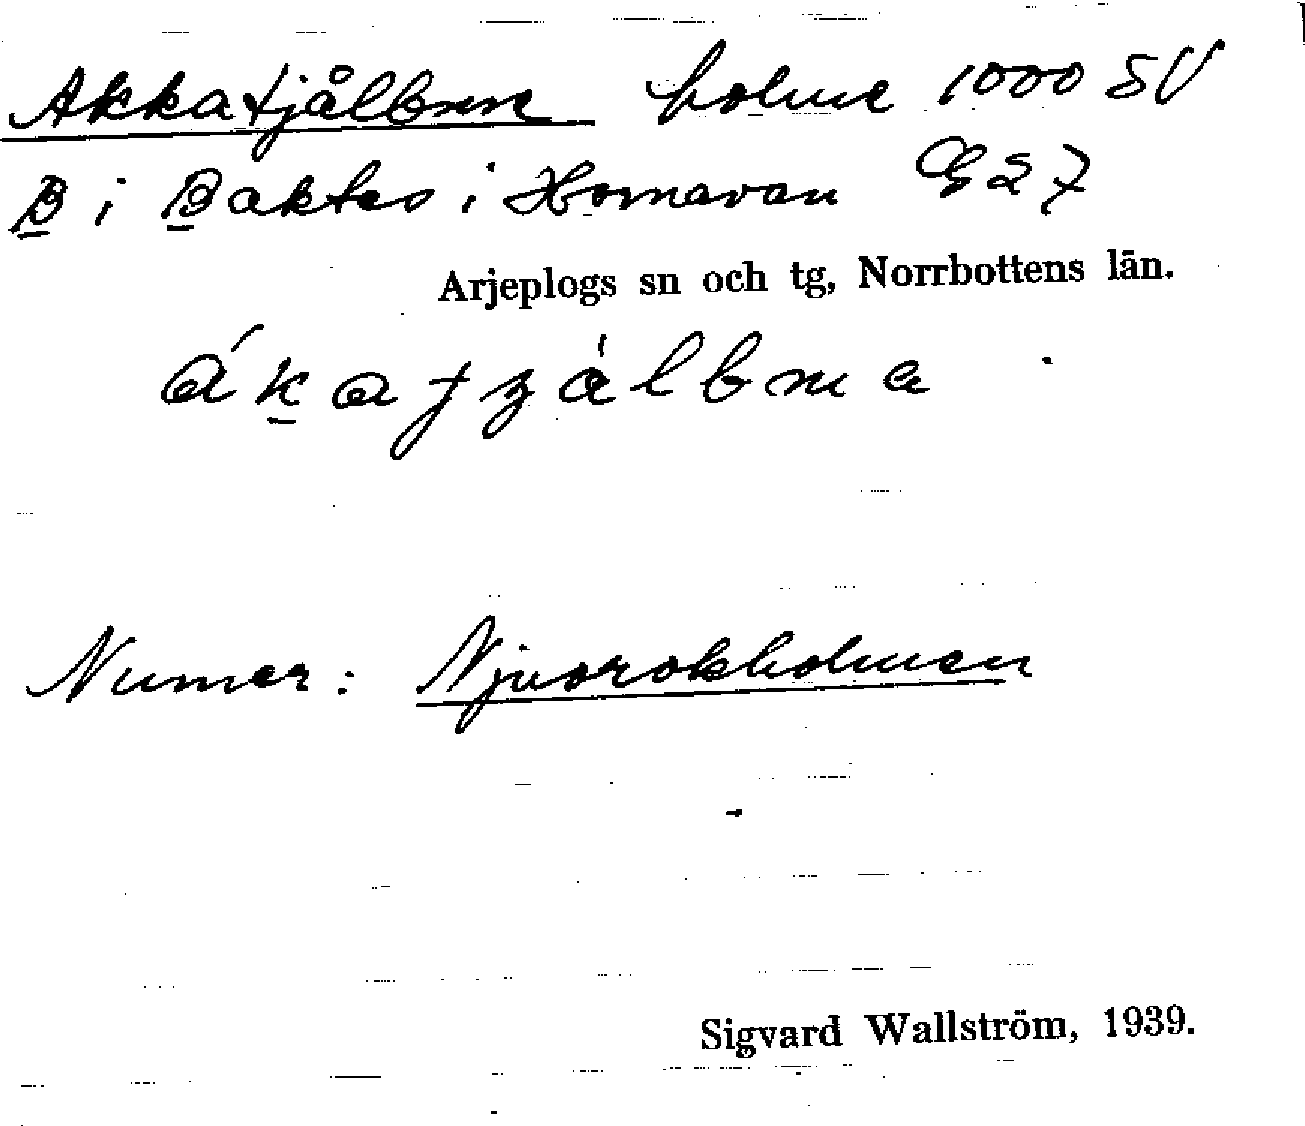 Akkatjålbme holme 1000 SV
B i Baktes i Hornavan G 27
Arjeplogs sn och tg, Norrbottens län.
áḵatʒálbma
Numer: Njuorokholmen
Sigvard Wallström, 1939.